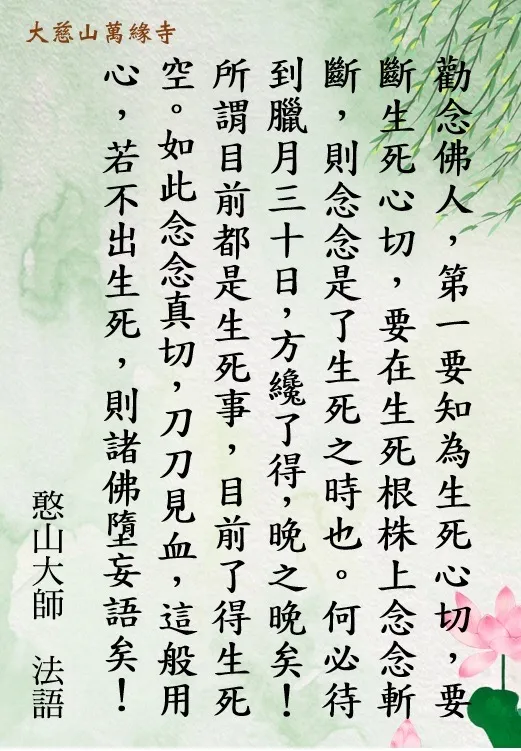 大慈山萬緣寺
勸念佛人，第一要知為生死心切，要
斷生死心切，要在生死根株上念念斬
斷，則念念是了生死之時也。何必待
到臘月三十日，方纔了得，晚之晚矣！
所謂目前都是生死事，目前了得生死
空。如此念念真切，刀刀見血，這般用
心，若不出生死，則諸佛墮妄語矣！
憨山大師 法語